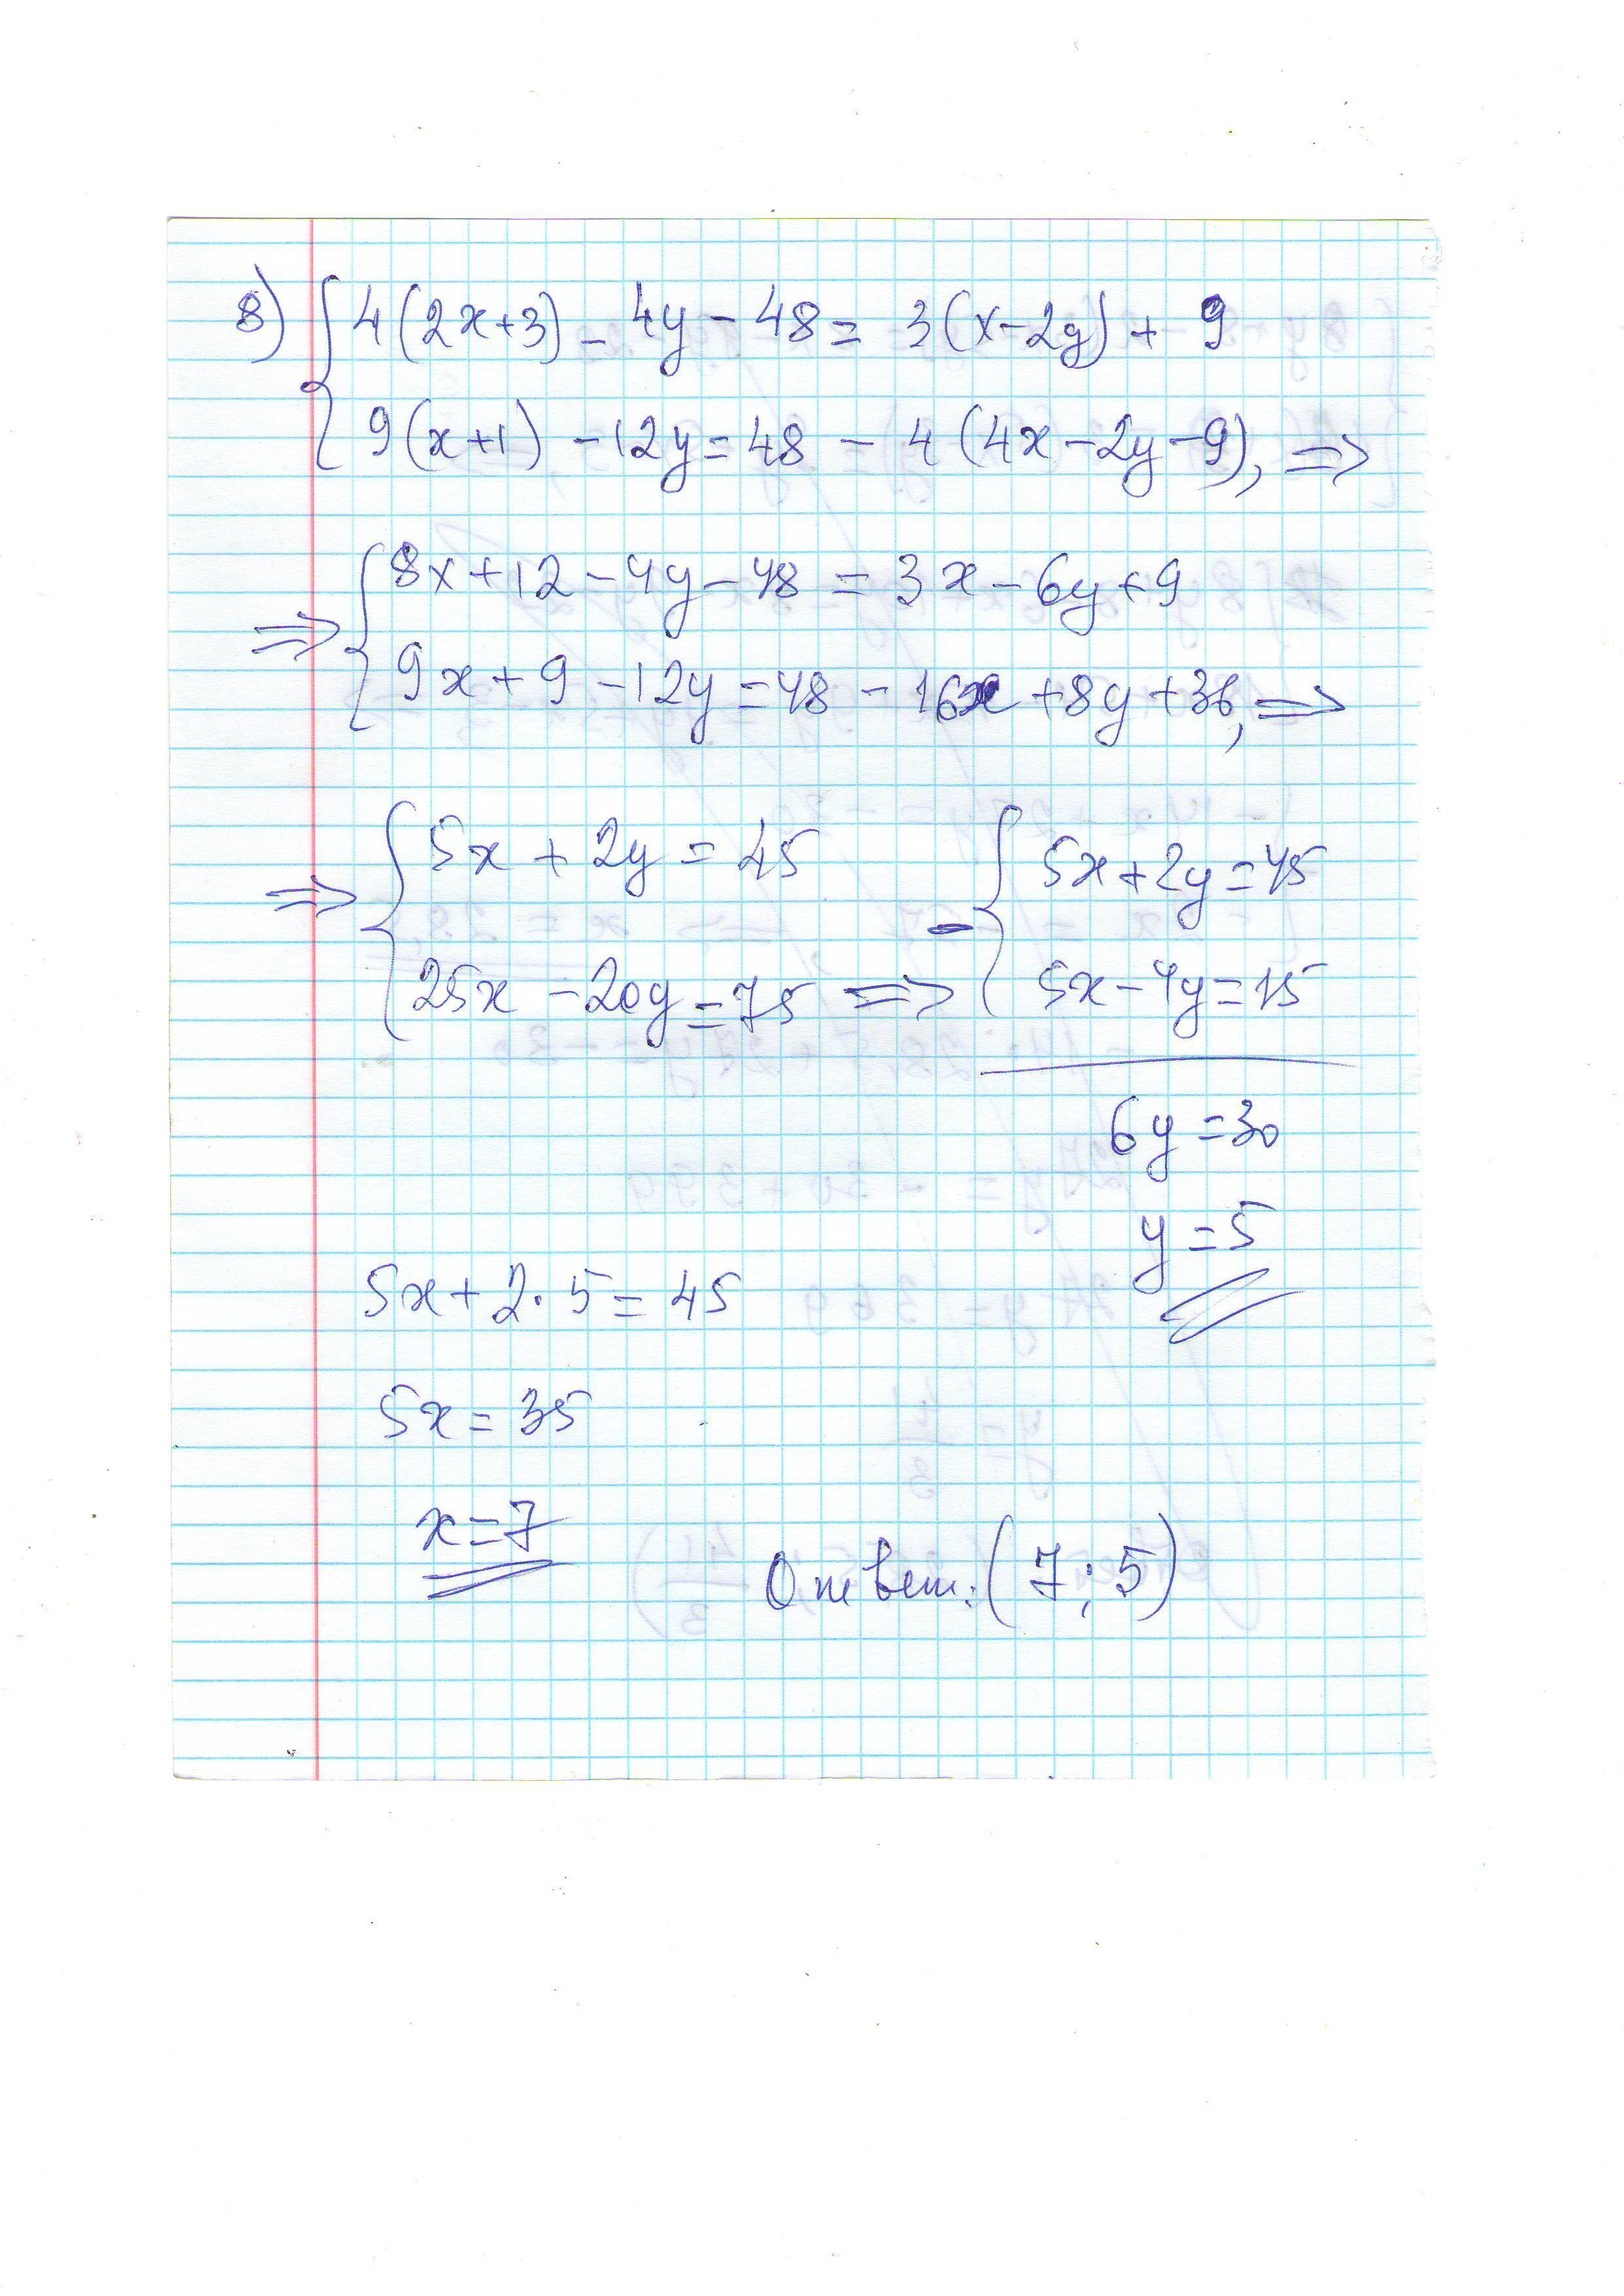 8) { 4(2x+3) - 4y - 48 = 3(x-2y) + 9
9(x+1) - 12y = 48 - 4(4x-2y-9), ⇒
⇒ { 8x+12-4y-48 = 3x-6y+9
9x+9-12y=48-16x+8y+36, ⇒
⇒ { 5x+2y=45
25x-20y=75 ⇒
- { 5x+2y=45
5x-4y=15
6y=30
y=5
5x+2·5=45
5x=35
x=7
Ответ: (7; 5)